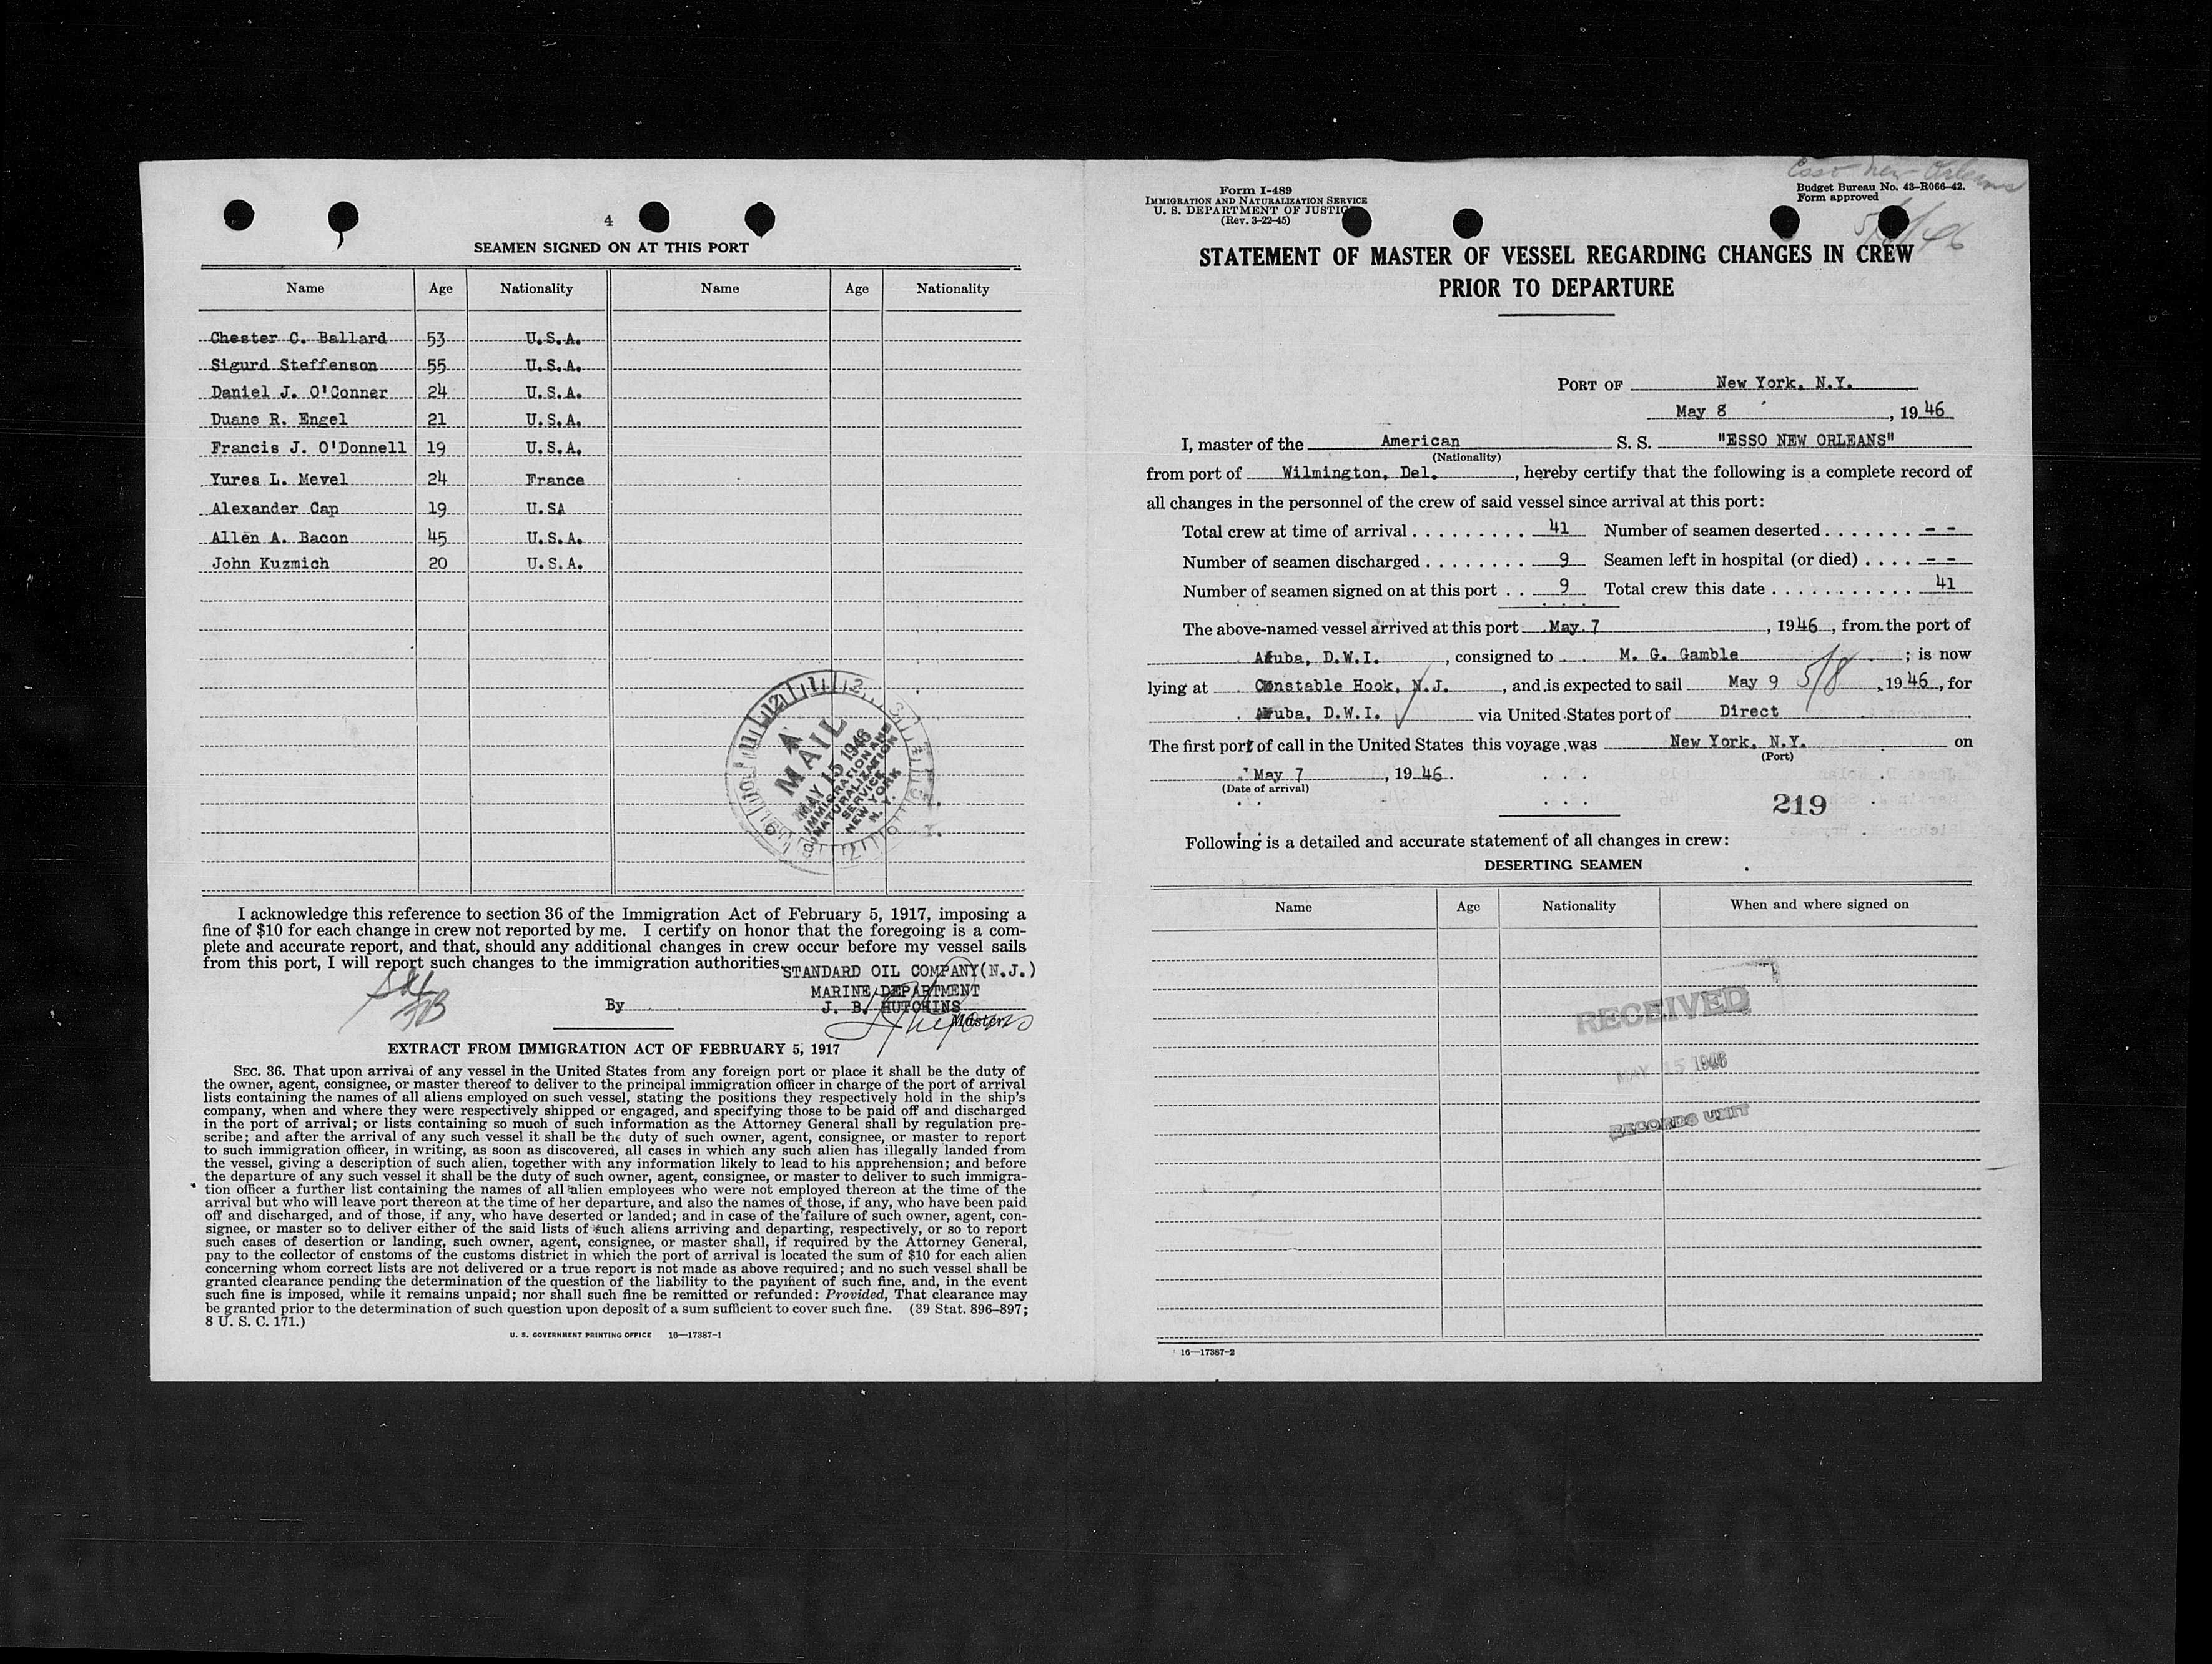 4
SEAMEN SIGNED ON AT THIS PORT
Name Age Nationality Name Age Nationality
Chester C. Ballard 53 U.S.A.
Sigurd Steffenson 55 U.S.A.
Daniel J. O'Conner 24 U.S.A.
Duane R. Engel 21 U.S.A.
Francis J. O'Donnell 19 U.S.A.
Yures L. Mevel 24 France
Alexander Cap 19 U.SA
Allen A. Bacon 45 U.S.A.
John Kuzmich 20 U.S.A.
MAIL
MAY 15 1946
IMMIGRATION AND
NATURALIZATION
SERVICE
NEW YORK
N. Y.
I acknowledge this reference to section 36 of the Immigration Act of February 5, 1917, imposing a
fine of $10 for each change in crew not reported by me. I certify on honor that the foregoing is a com-
plete and accurate report, and that, should any additional changes in crew occur before my vessel sails
from this port, I will report such changes to the immigration authorities.
STANDARD OIL COMPANY(N.J.)
MARINE DEPARTMENT
By J. B. HUTCHINS
Master.
EXTRACT FROM IMMIGRATION ACT OF FEBRUARY 5, 1917
SEC. 36. That upon arrival of any vessel in the United States from any foreign port or place it shall be the duty of
the owner, agent, consignee, or master thereof to deliver to the principal immigration officer in charge of the port of arrival
lists containing the names of all aliens employed on such vessel, stating the positions they respectively hold in the ship's
company, when and where they were respectively shipped or engaged, and specifying those to be paid off and discharged
in the port of arrival; or lists containing so much of such information as the Attorney General shall by regulation pre-
scribe; and after the arrival of any such vessel it shall be the duty of such owner, agent, consignee, or master to report
to such immigration officer, in writing, as soon as discovered, all cases in which any such alien has illegally landed from
the vessel, giving a description of such alien, together with any information likely to lead to his apprehension; and before
the departure of any such vessel it shall be the duty of such owner, agent, consignee, or master to deliver to such immigra-
tion officer a further list containing the names of all alien employees who were not employed thereon at the time of the
arrival but who will leave port thereon at the time of her departure, and also the names of those, if any, who have been paid
off and discharged, and of those, if any, who have deserted or landed; and in case of the failure of such owner, agent, con-
signee, or master so to deliver either of the said lists of such aliens arriving and departing, respectively, or so to report
such cases of desertion or landing, such owner, agent, consignee, or master shall, if required by the Attorney General,
pay to the collector of customs of the customs district in which the port of arrival is located the sum of $10 for each alien
concerning whom correct lists are not delivered or a true report is not made as above required; and no such vessel shall be
granted clearance pending the determination of the question of the liability to the payment of such fine, and, in the event
such fine is imposed, while it remains unpaid; nor shall such fine be remitted or refunded: Provided, That clearance may
be granted prior to the determination of such question upon deposit of a sum sufficient to cover such fine. (39 Stat. 896-897;
8 U. S. C. 171.)
U. S. GOVERNMENT PRINTING OFFICE 16—17387-1
Esso New Orleans
Form I-489
IMMIGRATION AND NATURALIZATION SERVICE
U. S. DEPARTMENT OF JUSTICE
(Rev. 3-22-45)
Budget Bureau No. 43-R066-42.
Form approved
STATEMENT OF MASTER OF VESSEL REGARDING CHANGES IN CREW
PRIOR TO DEPARTURE
PORT OF New York, N.Y.
May 8, 1946
I, master of the American S. S. "ESSO NEW ORLEANS"
(Nationality)
from port of Wilmington, Del., hereby certify that the following is a complete record of
all changes in the personnel of the crew of said vessel since arrival at this port:
Total crew at time of arrival 41 Number of seamen deserted - -
Number of seamen discharged 9 Seamen left in hospital (or died) - -
Number of seamen signed on at this port 9 Total crew this date 41
The above-named vessel arrived at this port May 7, 1946, from the port of
Aruba, D.W.I., consigned to M. G. Gamble; is now
lying at Constable Hook, N.J., and is expected to sail May 9 5/8, 1946, for
Aruba, D.W.I. via United States port of Direct
The first port of call in the United States this voyage was New York, N.Y. on
(Port)
May 7, 1946.
(Date of arrival)
219
Following is a detailed and accurate statement of all changes in crew:
DESERTING SEAMEN
Name Age Nationality When and where signed on
RECEIVED
MAY 15 1946
RECORDS UNIT
16—17387-2